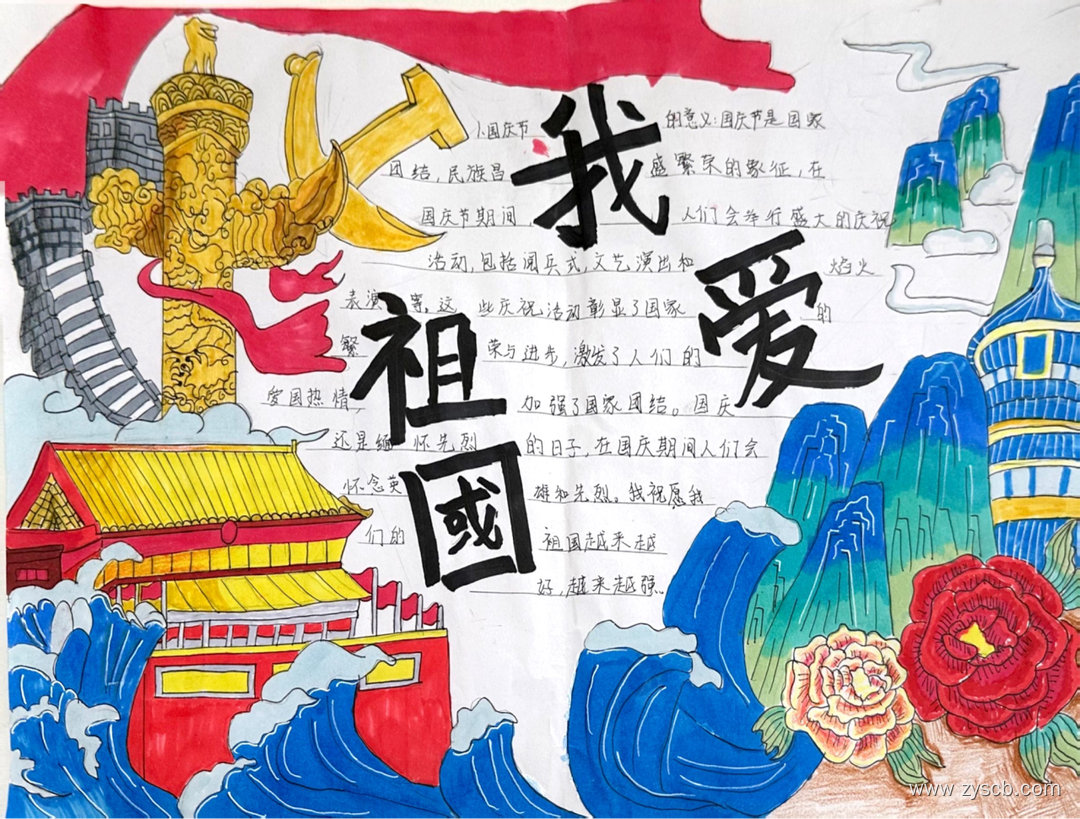 我爱祖國
1.国庆节的意义:国庆节是国家
团结,民族昌盛繁荣的象征,在
国庆节期间,人们会举行盛大的庆祝
活动,包括阅兵式,文艺演出和焰火
表演等。这些庆祝活动彰显了国家的
繁荣与进步,激发了人们的
爱国热情,加强了国家团结。国庆
还是缅怀先烈的日子,在国庆期间人们会
怀念英雄和先烈。我祝愿我
们的祖国越来越
好,越来越强。
www.zyscb.com